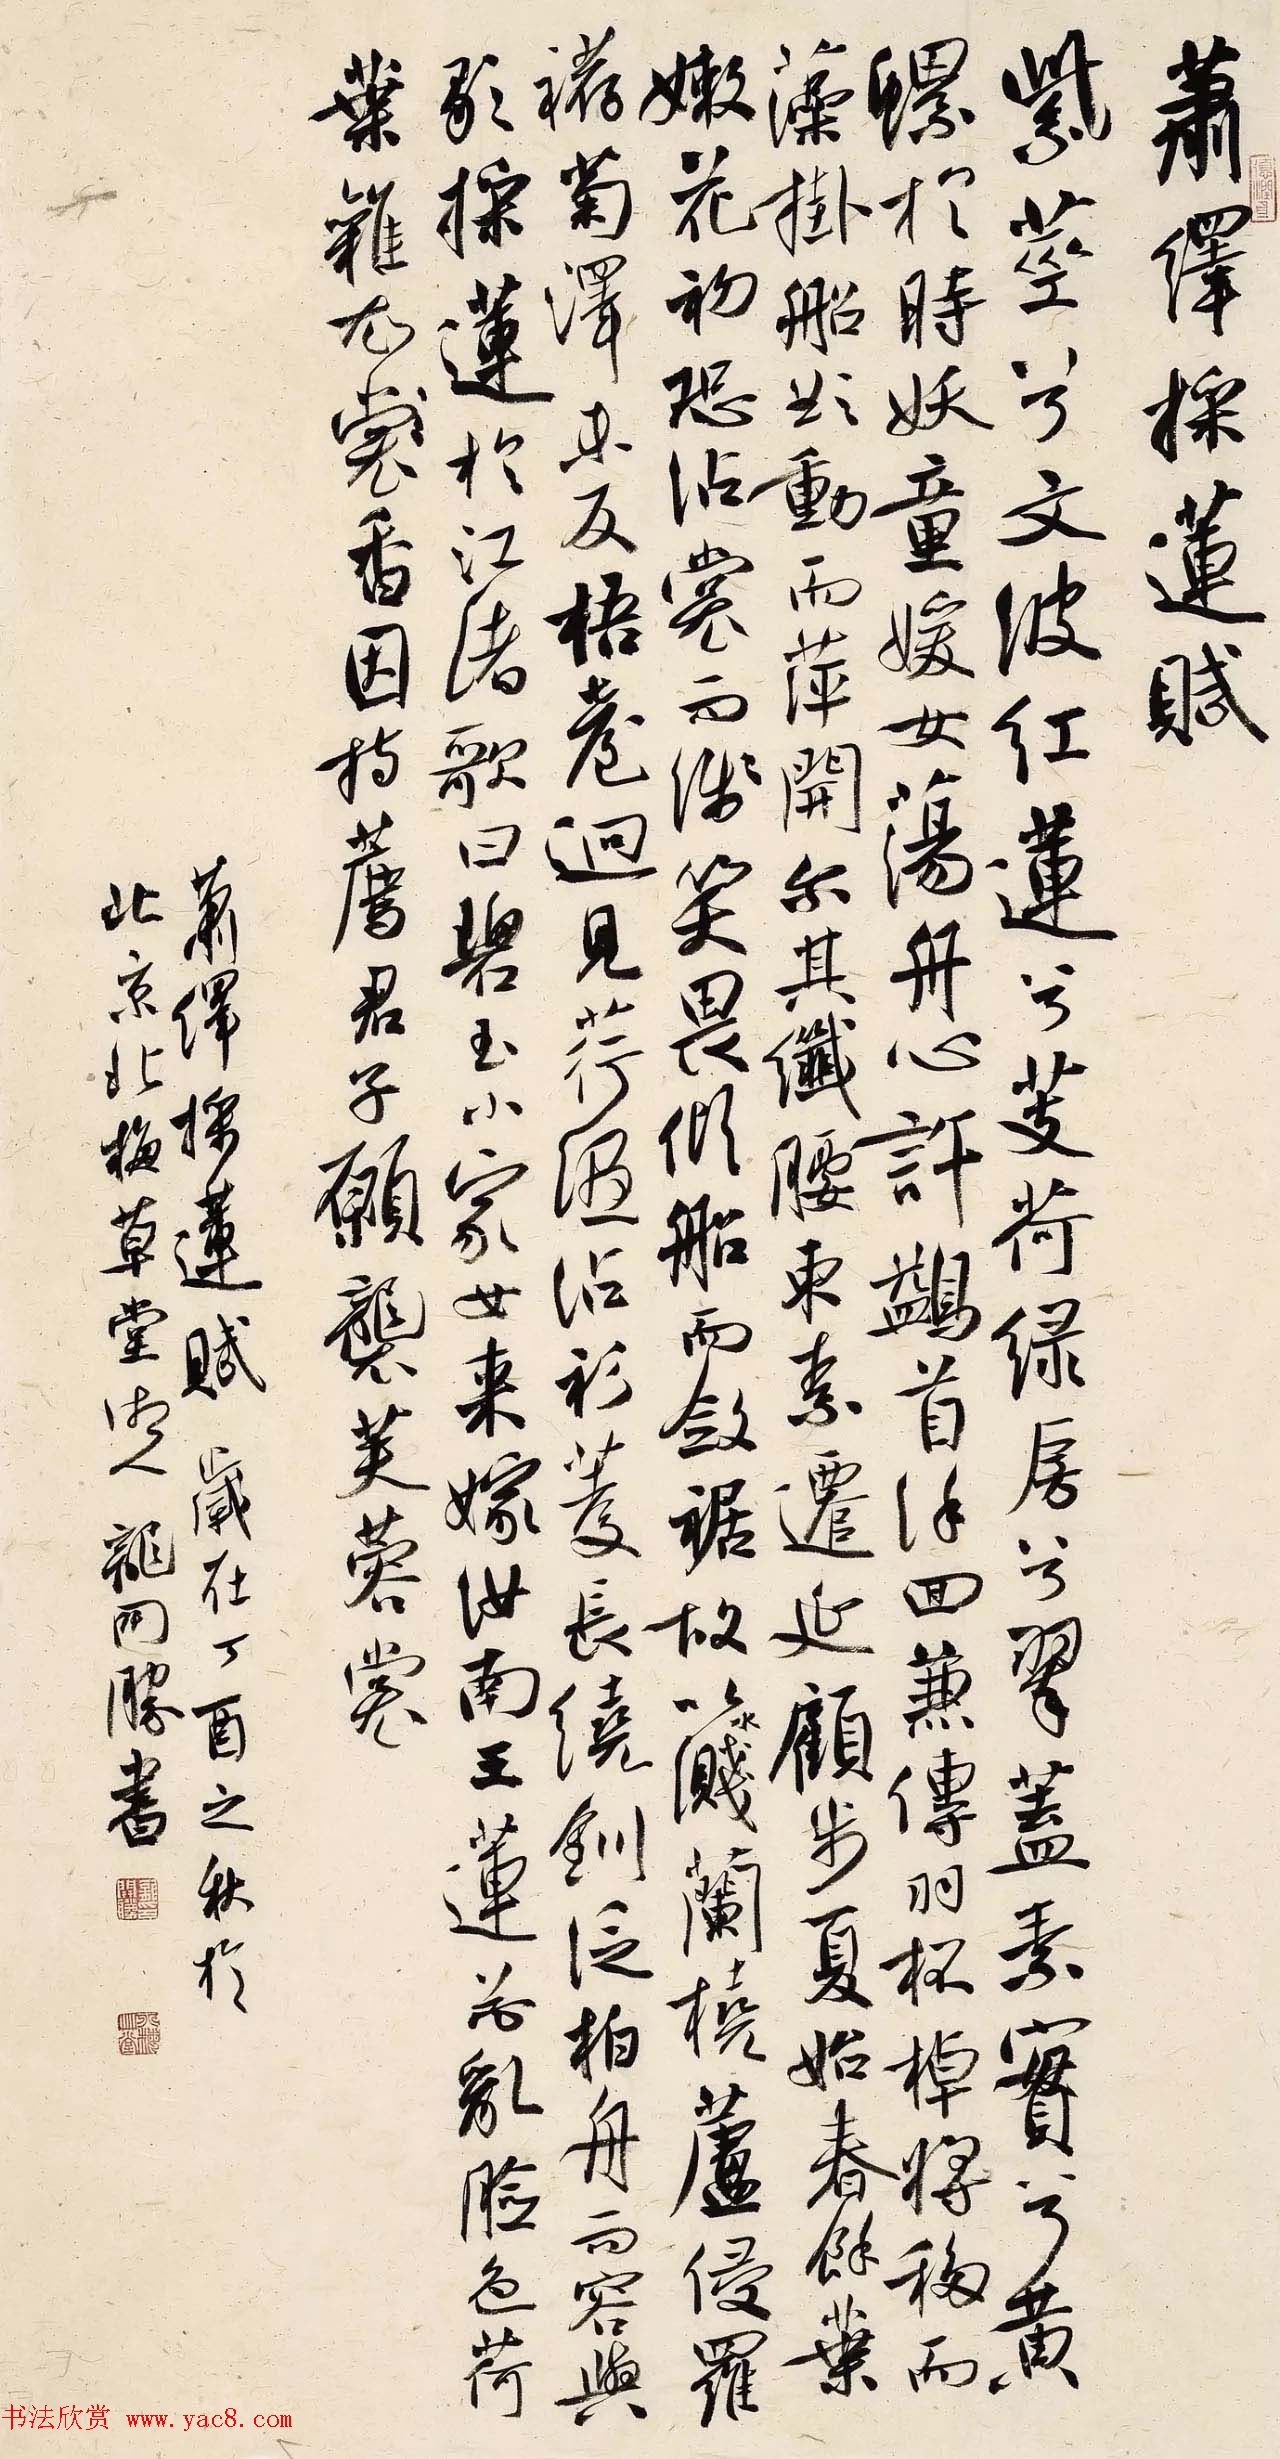 蕭繹採蓮賦
紫莖兮文波紅蓮兮芰荷綠房兮翠蓋素實兮黃
螺於時妖童媛女蕩舟心許鷁首徐回兼傳羽杯棹將移而
藻掛船欲動而萍開爾其纖腰束素遷延顧步夏始春餘葉
嫩花初恐沾裳而淺笑畏傾船而斂裾故以濺蘭橈蘆侵羅
𧝓菊澤未反梧臺迥見荇濕沾衫菱長繞釧泛柏舟而容與
歌採蓮於江渚歌曰碧玉小家女來嫁汝南王蓮花亂臉色荷
葉雜衣裳香因持薦君子願襲芙蓉裳
蕭繹採蓮賦 歲在丁酉之秋於
北京北梅草堂 龍開勝書
书法欣赏 www.yac8.com